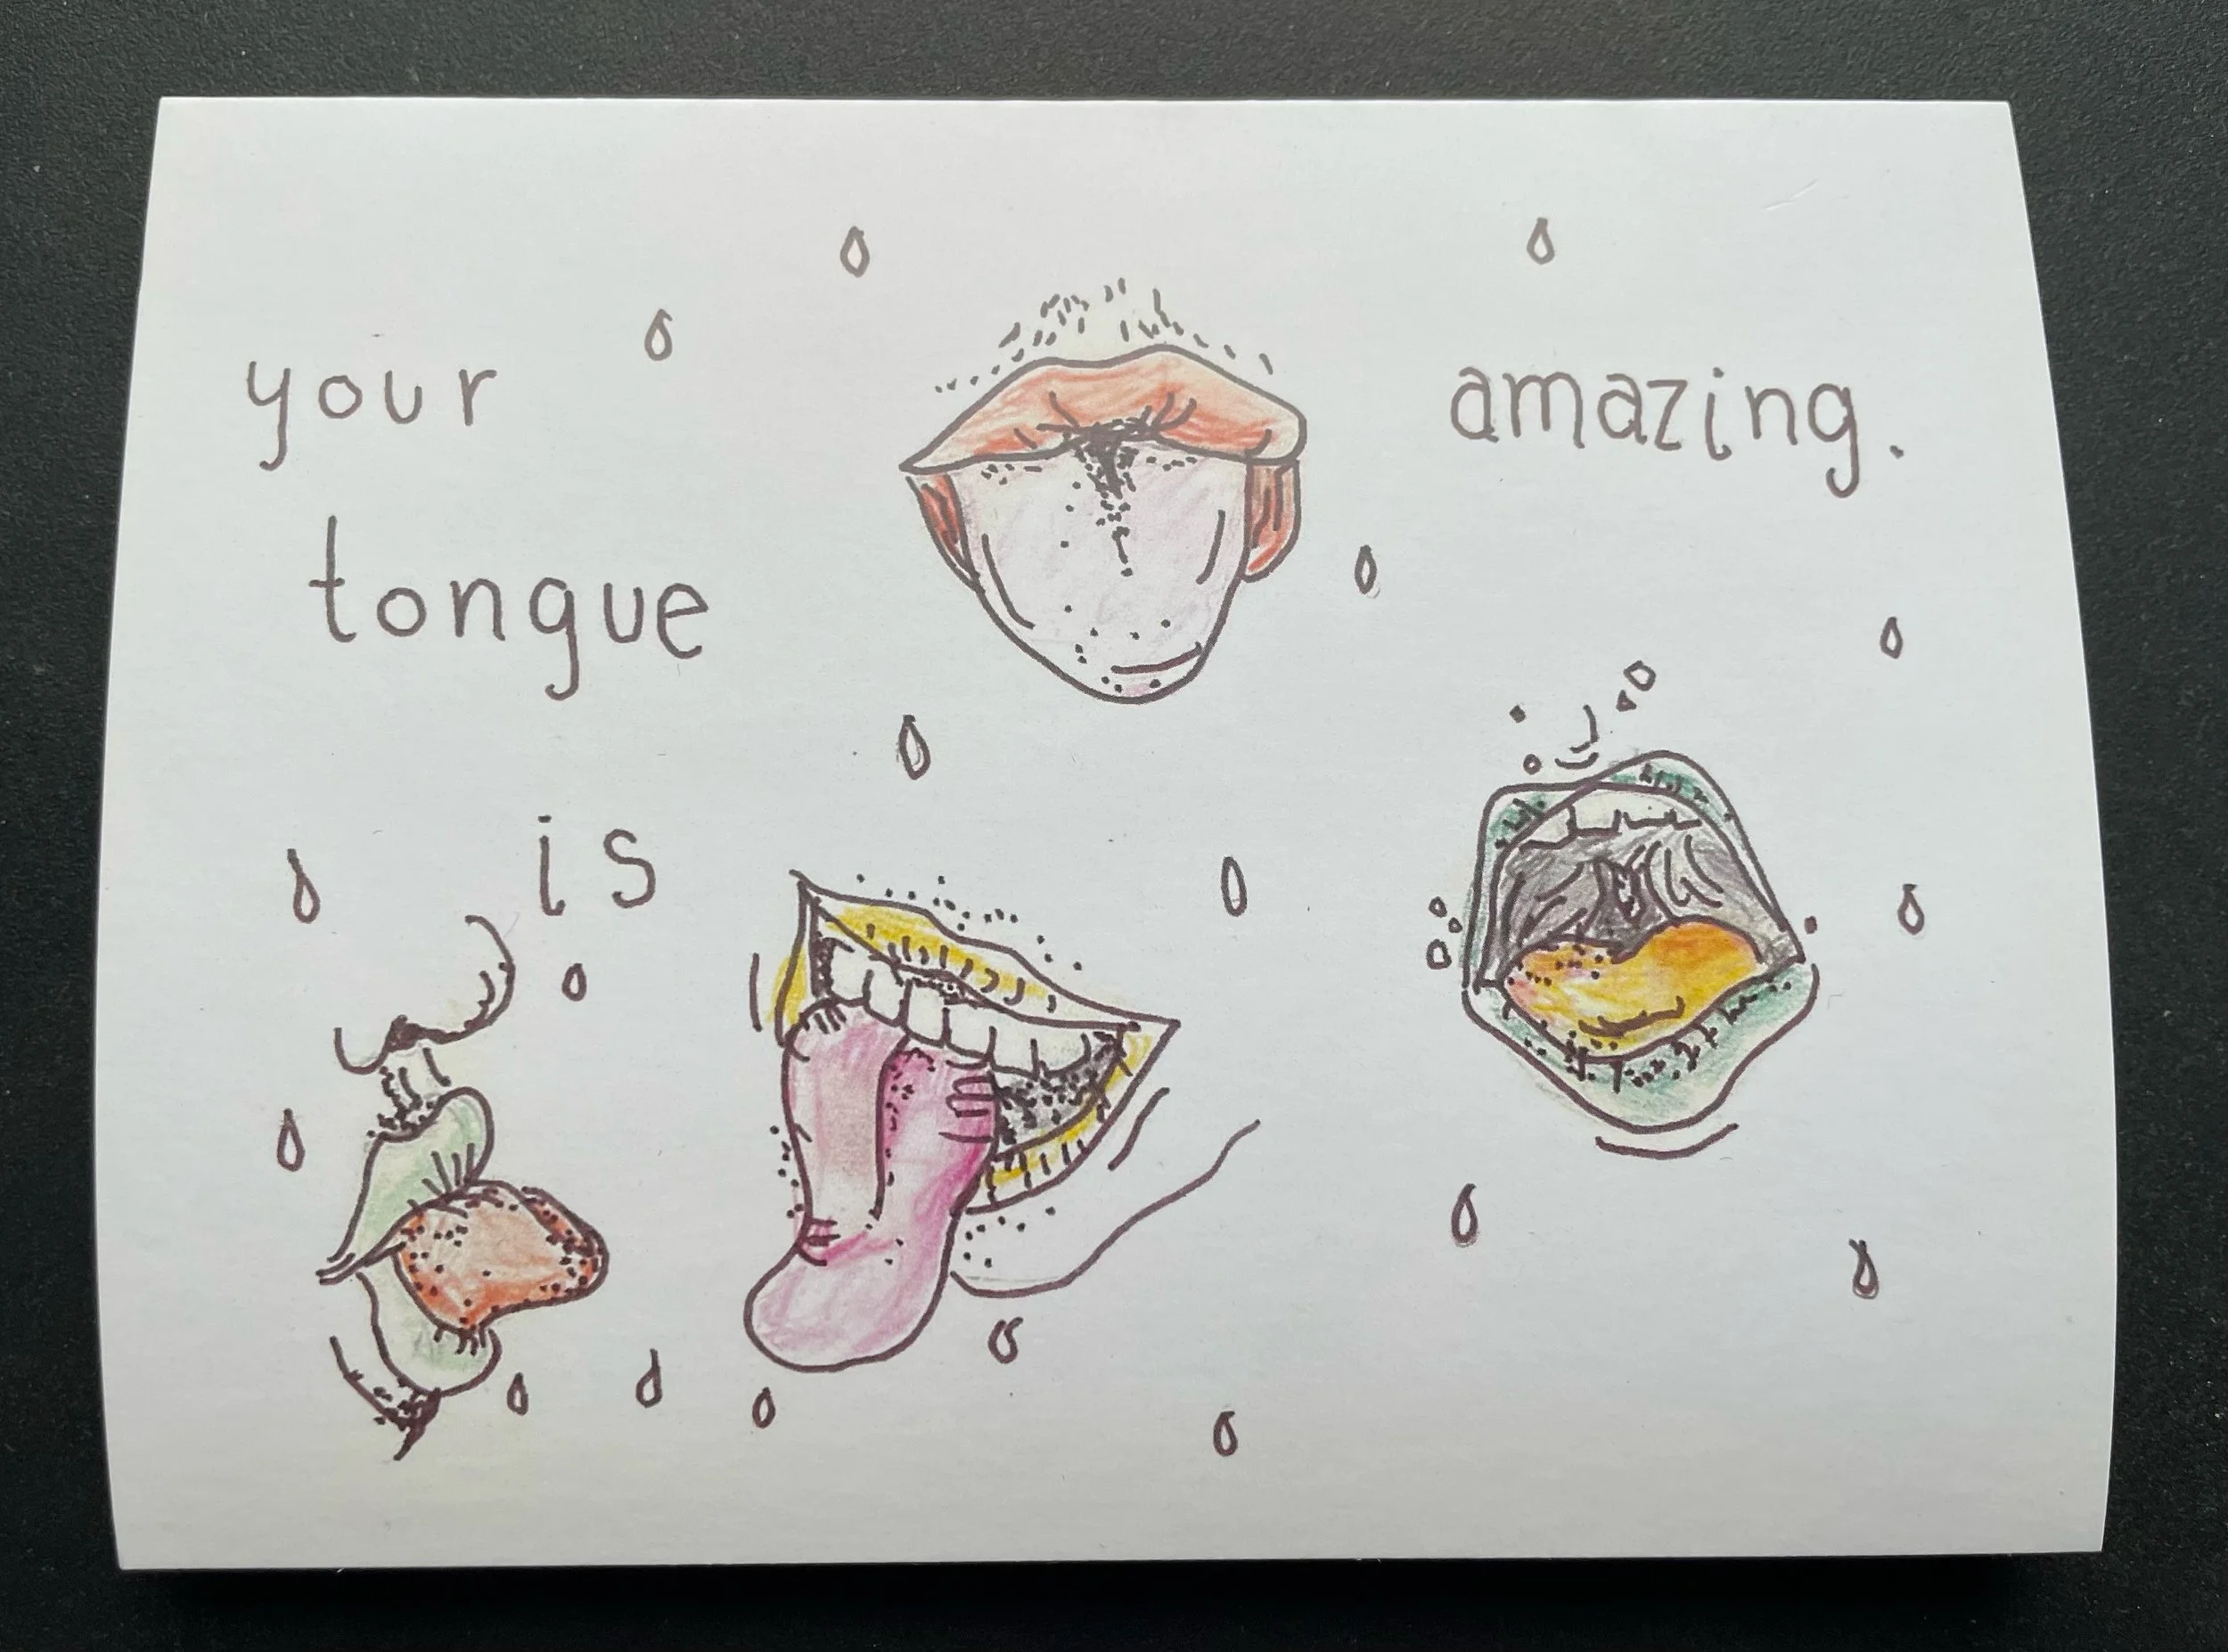 your
tongue
is
amazing.